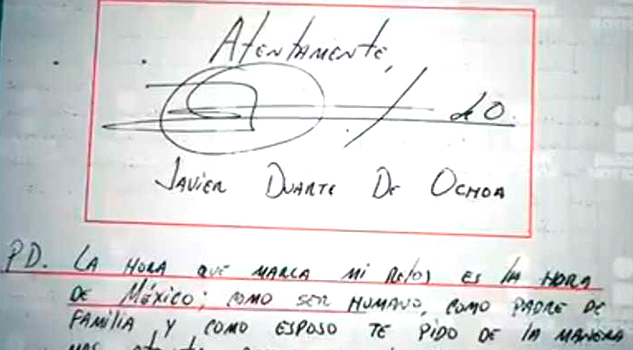 Atentamente,
d O.
Javier Duarte De Ochoa
PD. La hora que marca mi reloj es la hora
de México; como ser humano, como padre de
familia y como esposo te pido de la manera
mas